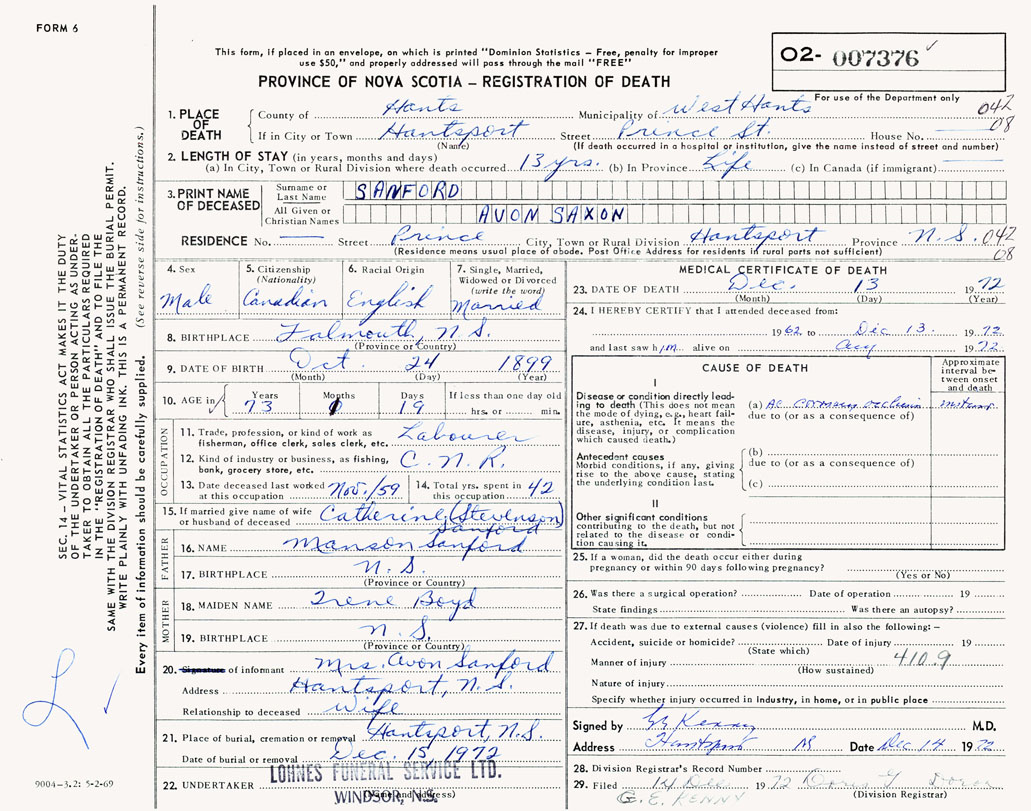 FORM 6
This form, if placed in an envelope, on which is printed "Dominion Statistics – Free, penalty for improper
use $50," and properly addressed will pass through the mail "FREE"
PROVINCE OF NOVA SCOTIA – REGISTRATION OF DEATH
O2- 007376 ✓
For use of the Department only
1. PLACE OF DEATH
County of Hants Municipality of West Hants 042
If in City or Town Hantsport Street Prince St. House No. 08
(Name) (If death occurred in a hospital or institution, give the name instead of street and number)
2. LENGTH OF STAY (in years, months and days)
(a) In City, Town or Rural Division where death occurred 13 yrs. (b) In Province Life (c) In Canada (if immigrant)
3. PRINT NAME OF DECEASED
Surname or Last Name SANFORD
All Given or Christian Names AVON SAXON
RESIDENCE No. — Street Prince City, Town or Rural Division Hantsport Province N.S. 042
(Residence means usual place of abode. Post Office Address for residents in rural parts not sufficient) 08
4. Sex Male
5. Citizenship (Nationality) Canadian
6. Racial Origin English
7. Single, Married, Widowed or Divorced (write the word) Married
8. BIRTHPLACE Falmouth, N.S.
(Province or Country)
9. DATE OF BIRTH Oct. 24 1899
(Month) (Day) (Year)
10. AGE in Years 73 Months Days 19 If less than one day old hrs. or min.
OCCUPATION
11. Trade, profession, or kind of work as fisherman, office clerk, sales clerk, etc. Labourer
12. Kind of industry or business, as fishing, bank, grocery store, etc. C.N.R.
13. Date deceased last worked at this occupation Nov./59
14. Total yrs. spent in this occupation 42
15. If married give name of wife or husband of deceased Catherine (Stevenson) Sanford
FATHER
16. NAME Manson Sanford
17. BIRTHPLACE N.S.
(Province or Country)
MOTHER
18. MAIDEN NAME Irene Boyd
19. BIRTHPLACE N.S.
(Province or Country)
20. Signature of informant Mrs. Avon Sanford
Address Hantsport, N.S.
Relationship to deceased Wife
21. Place of burial, cremation or removal Hantsport, N.S.
Date of burial or removal Dec. 15, 1972
22. UNDERTAKER LOHNES FUNERAL SERVICE LTD.
(Name and address)
WINDSOR, N.S.
MEDICAL CERTIFICATE OF DEATH
23. DATE OF DEATH Dec. 13 1972
(Month) (Day) (Year)
24. I HEREBY CERTIFY that I attended deceased from:
1962 to Dec 13. 1972
and last saw him alive on 1972
CAUSE OF DEATH
Approximate interval between onset and death
I
Disease or condition directly leading to death (This does not mean the mode of dying, e.g., heart failure, asthenia, etc. It means the disease, injury, or complication which caused death.)
(a) Ac coronary occlusion
due to (or as a consequence of)
Antecedent causes
Morbid conditions, if any, giving rise to the above cause, stating the underlying condition last.
(b)
due to (or as a consequence of)
(c)
II
Other significant conditions contributing to the death, but not related to the disease or condition causing it.
25. If a woman, did the death occur either during
pregnancy or within 90 days following pregnancy?
(Yes or No)
26. Was there a surgical operation? Date of operation 19
State findings Was there an autopsy?
27. If death was due to external causes (violence) fill in also the following: –
Accident, suicide or homicide? Date of injury 19
(State which)
Manner of injury 410.9
(How sustained)
Nature of injury
Specify whether injury occurred in industry, in home, or in public place
Signed by Kenny M.D.
Address Hantsport NS Date Dec 14 1972
28. Division Registrar's Record Number
29. Filed 14 Dec 1972
(Division Registrar)
G.E. KENNY
SEC. 14 – VITAL STATISTICS ACT MAKES IT THE DUTY
OF THE UNDERTAKER OR PERSON ACTING AS UNDER-
TAKER TO OBTAIN ALL THE PARTICULARS REQUIRED
IN THE "REGISTRATION OF DEATH" AND TO FILE THE
SAME WITH THE DIVISION REGISTRAR WHO SHALL ISSUE THE BURIAL PERMIT.
WRITE PLAINLY WITH UNFADING INK. THIS IS A PERMANENT RECORD.
Every item of information should be carefully supplied. (See reverse side for instructions.)
9004-3.2: 5-2-69